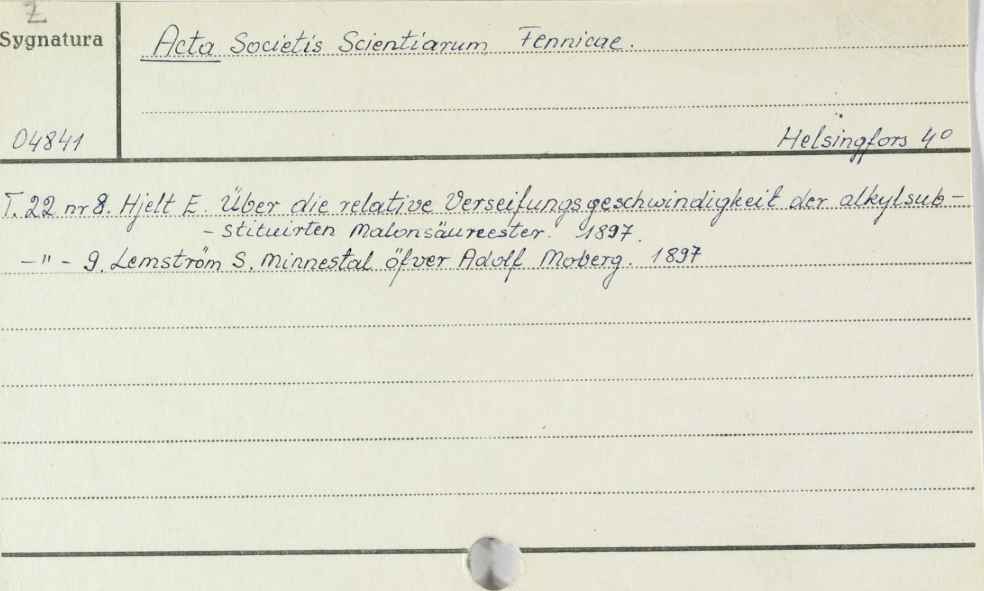 Z
Sygnatura
Acta Societis Scientiarum Fennicae.
04841
Helsingfors 4°
T. 22 nr 8. Hjelt E. Über die relative Verseifungsgeschwindigkeit der alkylsub-
- stituirten Malonsäureester. 1897.
-"- 9. Lemström S. Minnestal öfver Adolf Moberg. 1897